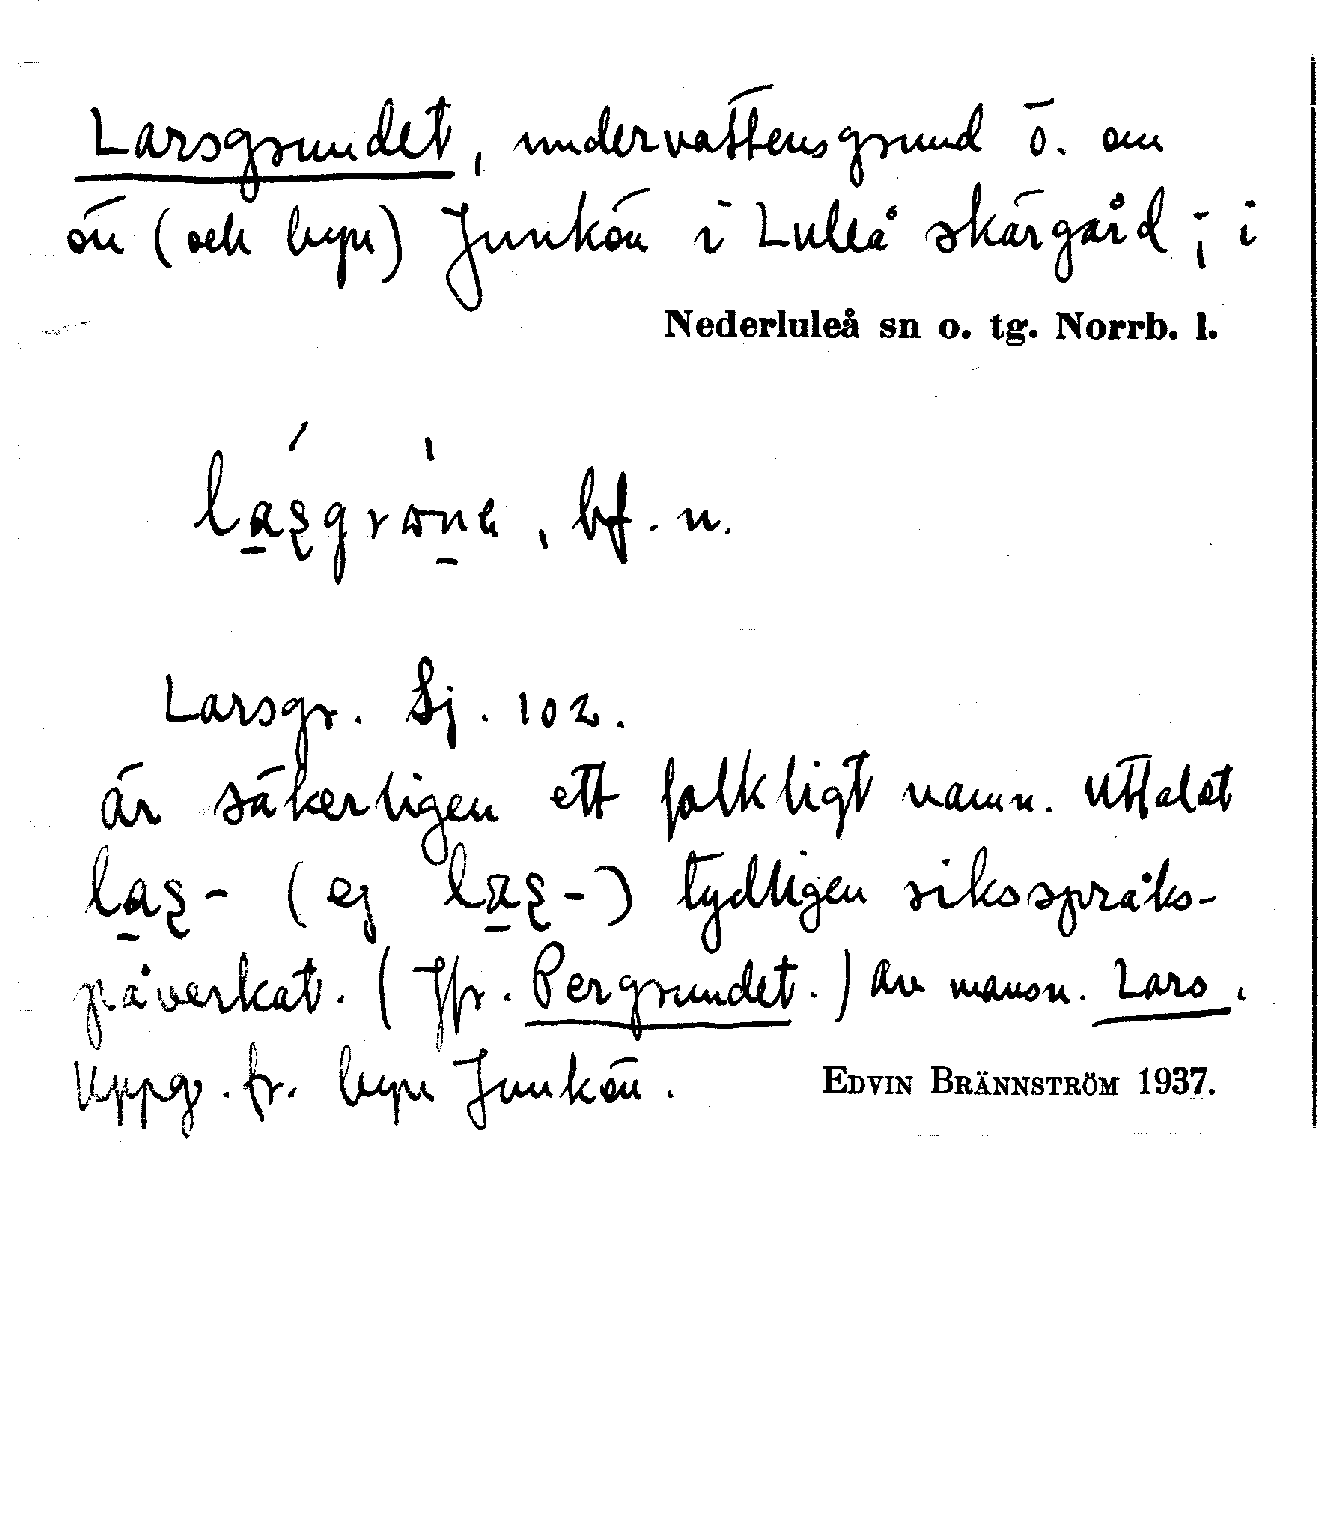 Larsgrundet, undervattensgrund ö. om
ön (och byn) Junkön i Luleå skärgård; i
Nederluleå sn o. tg. Norrb. l.
bf. n.
Larsgr. Sj. 102.
är säkerligen ett folkligt namn. Uttalet
(ej tydligen riksspråks-
påverkat. (Jfr. Pergrundet.) Av mansn. Lars.
Uppg. fr. byn Junkön. EDVIN BRÄNNSTRÖM 1937.